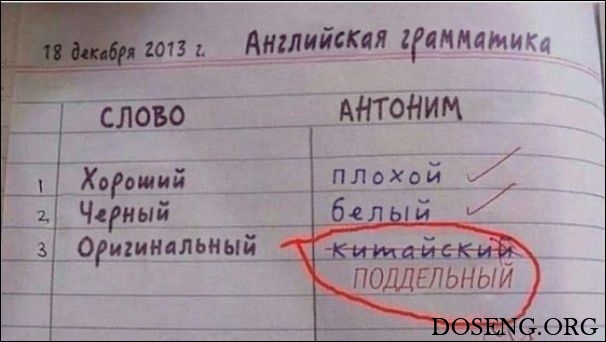 18 декабря 2013 г. Английская грамматика
СЛОВО АНТОНИМ
1 Хороший плохой
2 Черный белый
3 Оригинальный китайский
ПОДДЕЛЬНЫЙ
DOSENG.ORG